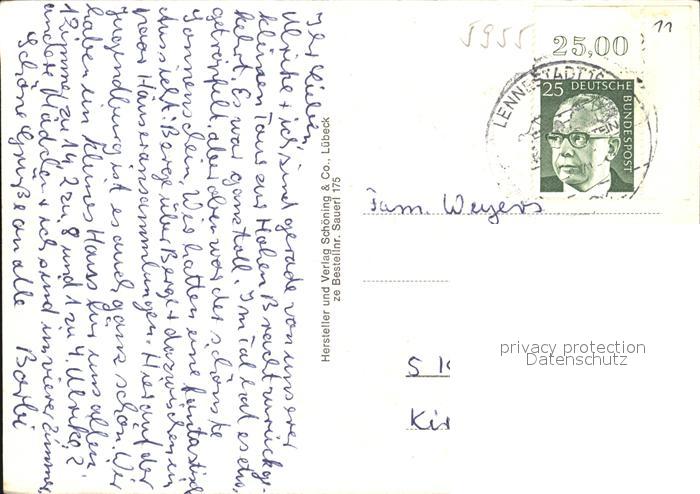 Ihr Lieben,
Ulrike + ich sind gerade von unserer
kleinen Tour zur Hohen Bracht zurückge-
kehrt. Es war ganz toll. Im Tal hat es etw.
getröpfelt, aber oben war der schönste
Sonnenschein. Wir hatten eine fantastische
Aussicht: Berge über Berge + dazwischen ein
paar Häuseransammlungen. Hier auf der
Jugendburg ist es auch ganz schön. Wir
haben ein kleines Haus für uns allein.
1 Zimmer zu 14, 2 zu 8 und 1 zu 4. Ulrike, 2
andere Mädchen + ich sind im Viererzimmer.
Schöne Grüße an alle Barbi
Hersteller und Verlag Schöning & Co., Lübeck
ze Bestellnr. Sauerl 175
5955
11
25,00
LENNESTADT
25 DEUTSCHE
BUNDESPOST
Fam. Weyers
5 K
Kir
privacy protection
Datenschutz